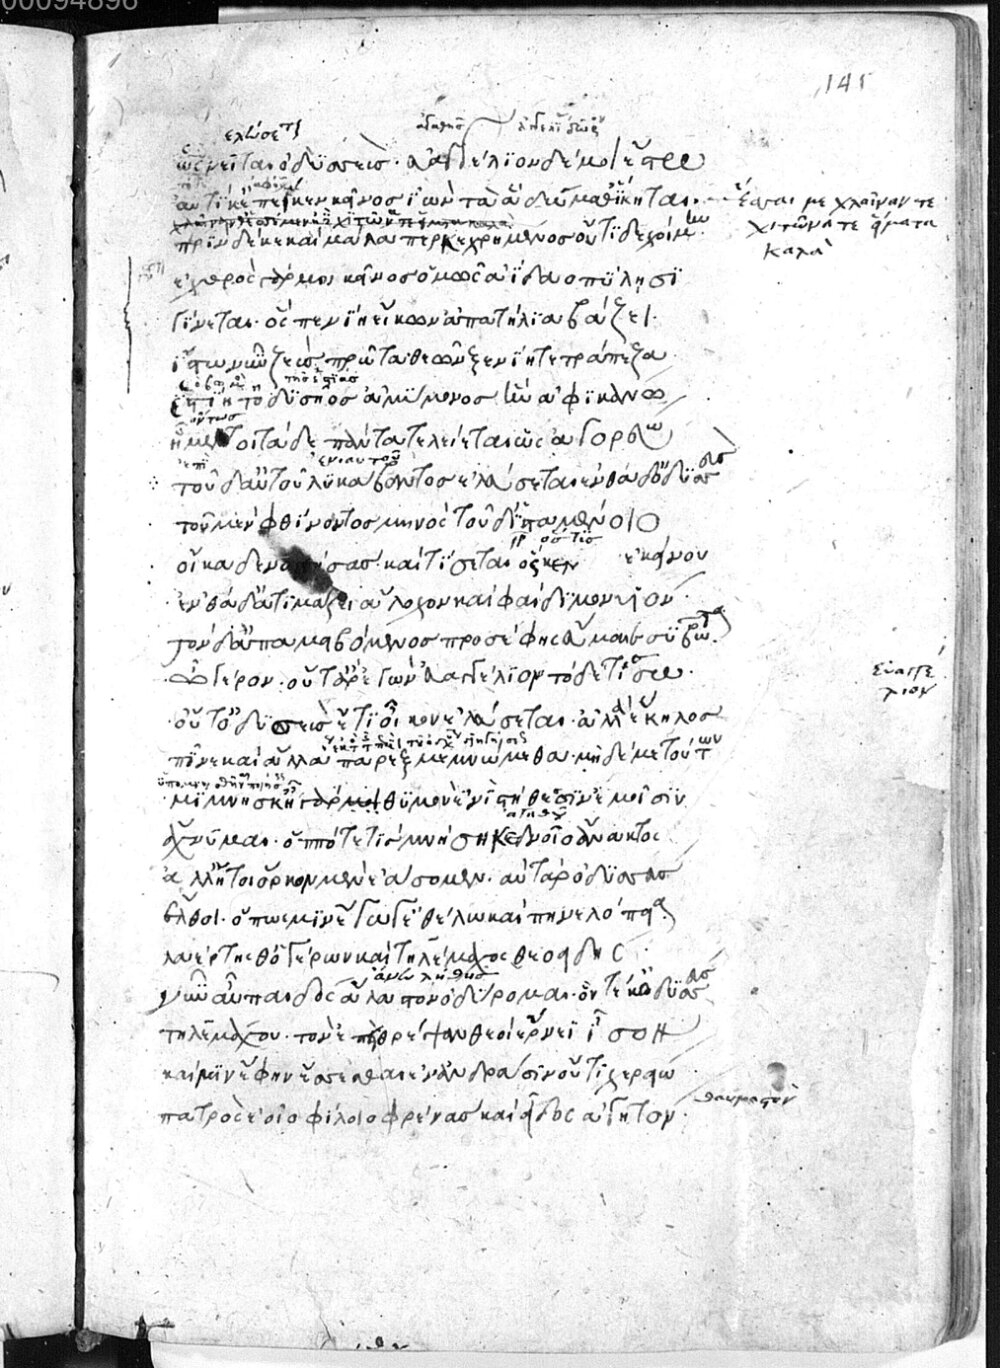 00094896
141
ὡς νεῖται ὀδυσεὺς· εὐαγγέλιον δέ μοι ἔστω
αὐτίκ' ἐπεί κεν κεῖνος ἰὼν τὰ ἃ δώμαθ' ἵκηται·
ἕσσαι με χλαῖναν τε
χιτῶνά τε εἵματα
καλά
πρὶν δέ κε καὶ μάλα περ κεχρημένος οὔ τι δεχοίμην·
ἐχθρὸς γάρ μοι κεῖνος ὁμῶς ἀΐδαο πύλησι
γίνεται· ὅς πενίη εἴκων ἀπατήλια βάζει·
ἴστω νῦν ζεὺς πρῶτα θεῶν ξενίη τε τράπεζα
ἱστίη τ' ὀδυσῆος ἀμύμονος ἣν ἀφικάνω
ἦ μέν τοι τάδε πάντα τελείεται ὡς ἀγορεύω
ἐνιαυτοῦ
τοῦ δ' αὐτοῦ λυκάβαντος ἐλεύσεται ἐνθάδ' ὀδυσσεὺς
τοῦ μὲν φθίνοντος μηνὸς τοῦ δ' ἱσταμένοιο
οἴκαδε καὶ τίσεται ὅς κεν ἐκείνου
ἐνθάδ' ἀτιμάζει ἄλοχον καὶ φαίδιμον υἱόν·
τὸν δ' ἀπαμειβόμενος προσέφης εὔμαιε συβῶτα
ὦ γέρον· οὔτ' ἄρ' ἐγὼν εὐαγγέλιον τόδε τίσω·
εὐαγγέ
λιον
οὔτ' ὀδυσεὺς ἔτι οἶκον ἐλεύσεται· ἀλλ' ἕκηλος
πῖνε καὶ ἄλλα παρὲξ μεμνώμεθα· μηδέ με τούτων
μίμνησκ' ἦ γάρ θυμὸν ἐνὶ στήθεσιν ἐμοῖσιν
ἄχνυμαι· ὁππότε τις μνήση κεδνοῖο ἄνακτος
ἀλλ' ἤτοι ὅρκον μὲν ἐάσομεν· αὐτὰρ ὀδυσσεὺς
ἔλθοι· ὅπως μιν ἔγωγ' ἐθέλω καὶ πηνελόπεια
λαέρτης θ' ὁ γέρων καὶ τηλέμαχος θεοειδής
νῦν αὖ παιδὸς ἄλαστον ὀδύρομαι· ὃν τέκ' ὀδυσσεὺς
τηλεμάχου· τὸν ἐπεὶ θρέψαν θεοὶ ἔρνεϊ ἶσον
καί μιν ἔφην ἔσεσθαι ἐν ἀνδράσιν οὔτι χερείω
πατρὸς ἑοῖο φίλοιο φρένας καὶ εἶδος ἀγητόν·
θαυμαστόν